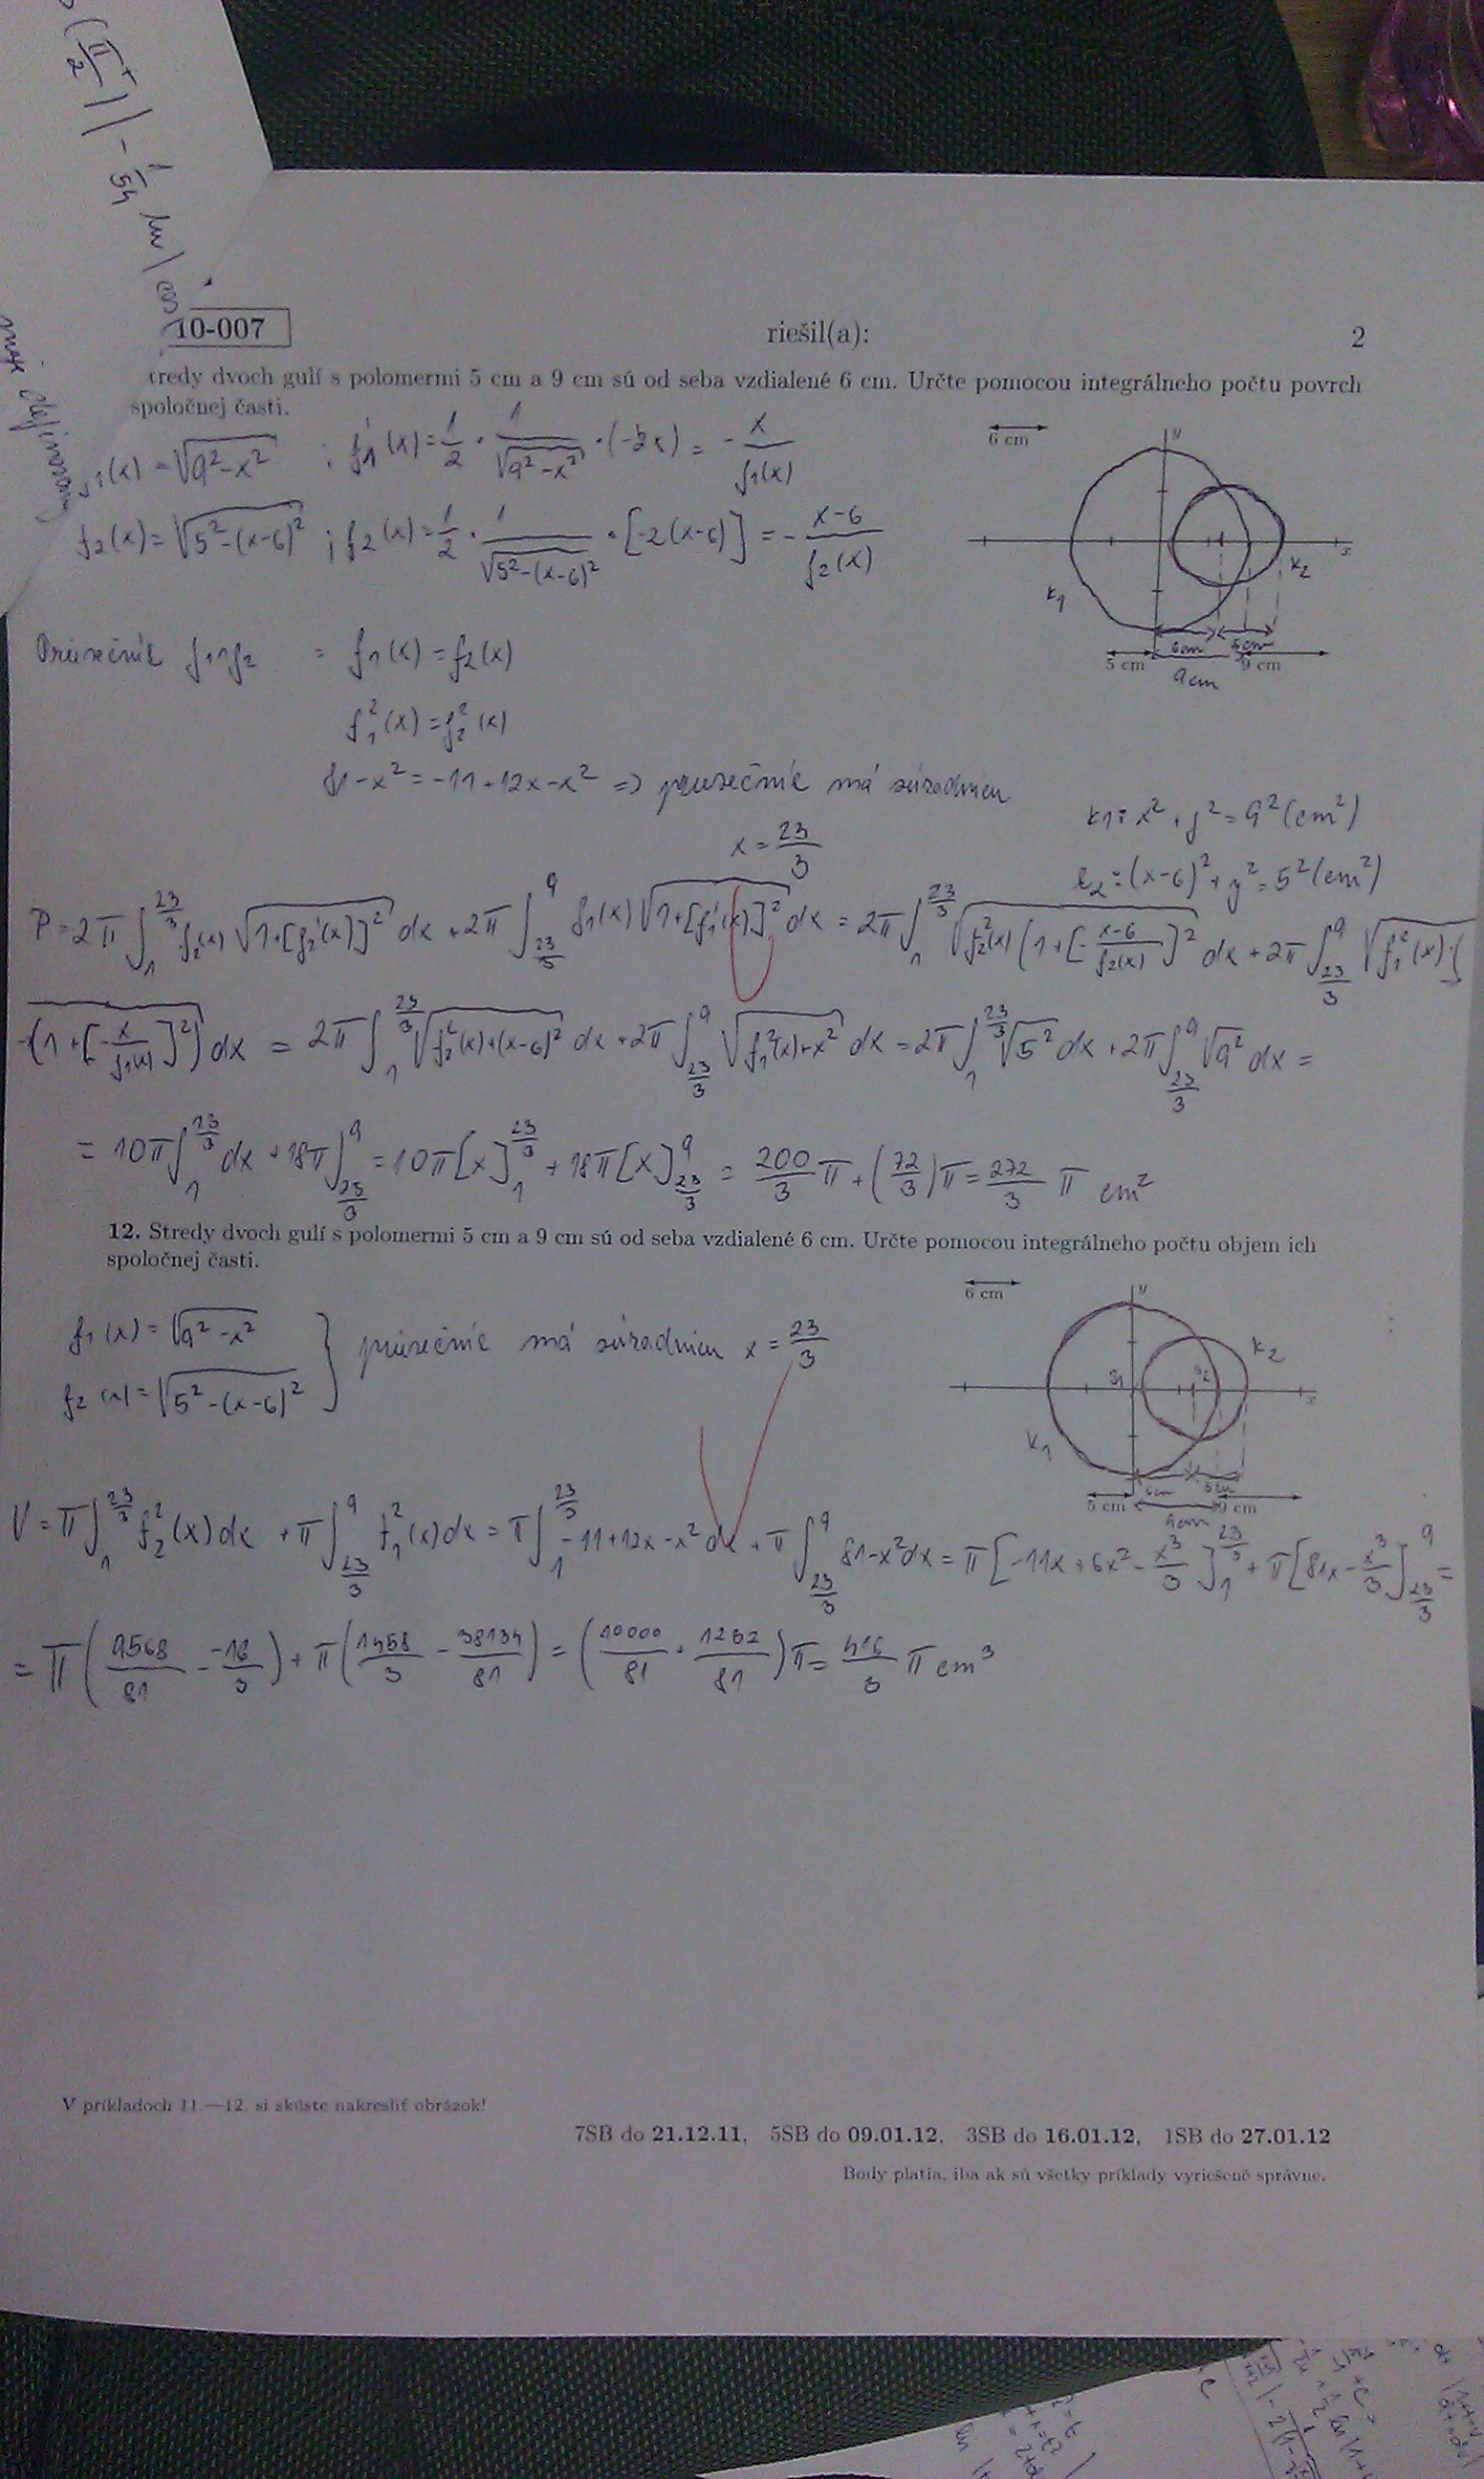 10-007 riešil(a): 2
tredy dvoch gulí s polomermi 5 cm a 9 cm sú od seba vzdialené 6 cm. Určte pomocou integrálneho počtu povrch
spoločnej časti.
f₁(x) = √(9²-x²) ; f₁'(x) = 1/2 · 1/√(9²-x²) · (-2x) = - x/f₁(x)
f₂(x) = √(5²-(x-6)²) ; f₂'(x) = 1/2 · 1/√(5²-(x-6)²) · [-2(x-6)] = - (x-6)/f₂(x)
6 cm
y
x
k₁
k₂
6cm 5cm
5 cm 9 cm
9cm
Priesečník f₁ f₂ = f₁(x) = f₂(x)
f₁²(x) = f₂²(x)
81-x² = -11+12x-x² => priesečník má súradnicu
x = 23/3
k₁: x² + y² = 9² (cm²)
k₂: (x-6)² + y² = 5² (cm²)
P = 2π ∫₁^(23/3) f₂(x) √(1+[f₂'(x)]²) dx + 2π ∫_(23/3)^9 f₁(x) √(1+[f₁'(x)]²) dx = 2π ∫₁^(23/3) √(f₂²(x)(1+[-(x-6)/f₂(x)]²) dx + 2π ∫_(23/3)^9 √(f₁²(x)·(
·(1+[-x/f₁(x)]²) dx = 2π ∫₁^(23/3) √(f₂²(x)+(x-6)²) dx + 2π ∫_(23/3)^9 √(f₁²(x)+x²) dx = 2π ∫₁^(23/3) √5² dx + 2π ∫_(23/3)^9 √9² dx =
= 10π ∫₁^(23/3) dx + 18π ∫_(23/3)^9 = 10π [x]₁^(23/3) + 18π [x]_(23/3)^9 = 200/3 π + (72/3)π = 272/3 π cm²
12. Stredy dvoch gulí s polomermi 5 cm a 9 cm sú od seba vzdialené 6 cm. Určte pomocou integrálneho počtu objem ich
spoločnej časti.
f₁(x) = √(9²-x²)
f₂(x) = √(5²-(x-6)²)
} priesečník má súradnicu x = 23/3
6 cm
y
x
S₁ S₂
k₁
k₂
6cm 5cm
5 cm 9 cm
9cm
V = π ∫₁^(23/3) f₂²(x) dx + π ∫_(23/3)^9 f₁²(x) dx = π ∫₁^(23/3) -11+12x-x² dx + π ∫_(23/3)^9 81-x² dx = π [-11x+6x²-x³/3]₁^(23/3) + π [81x-x³/3]_(23/3)^9 =
= π (9568/81 - -16/3) + π (1458/3 - 38134/81) = (10000/81 + 1232/81) π = 416/3 π cm³
V príkladoch 11.—12. si skúste nakresliť obrázok!
7SB do 21.12.11, 5SB do 09.01.12, 3SB do 16.01.12, 1SB do 27.01.12
Body platia, iba ak sú všetky príklady vyriešené správne.